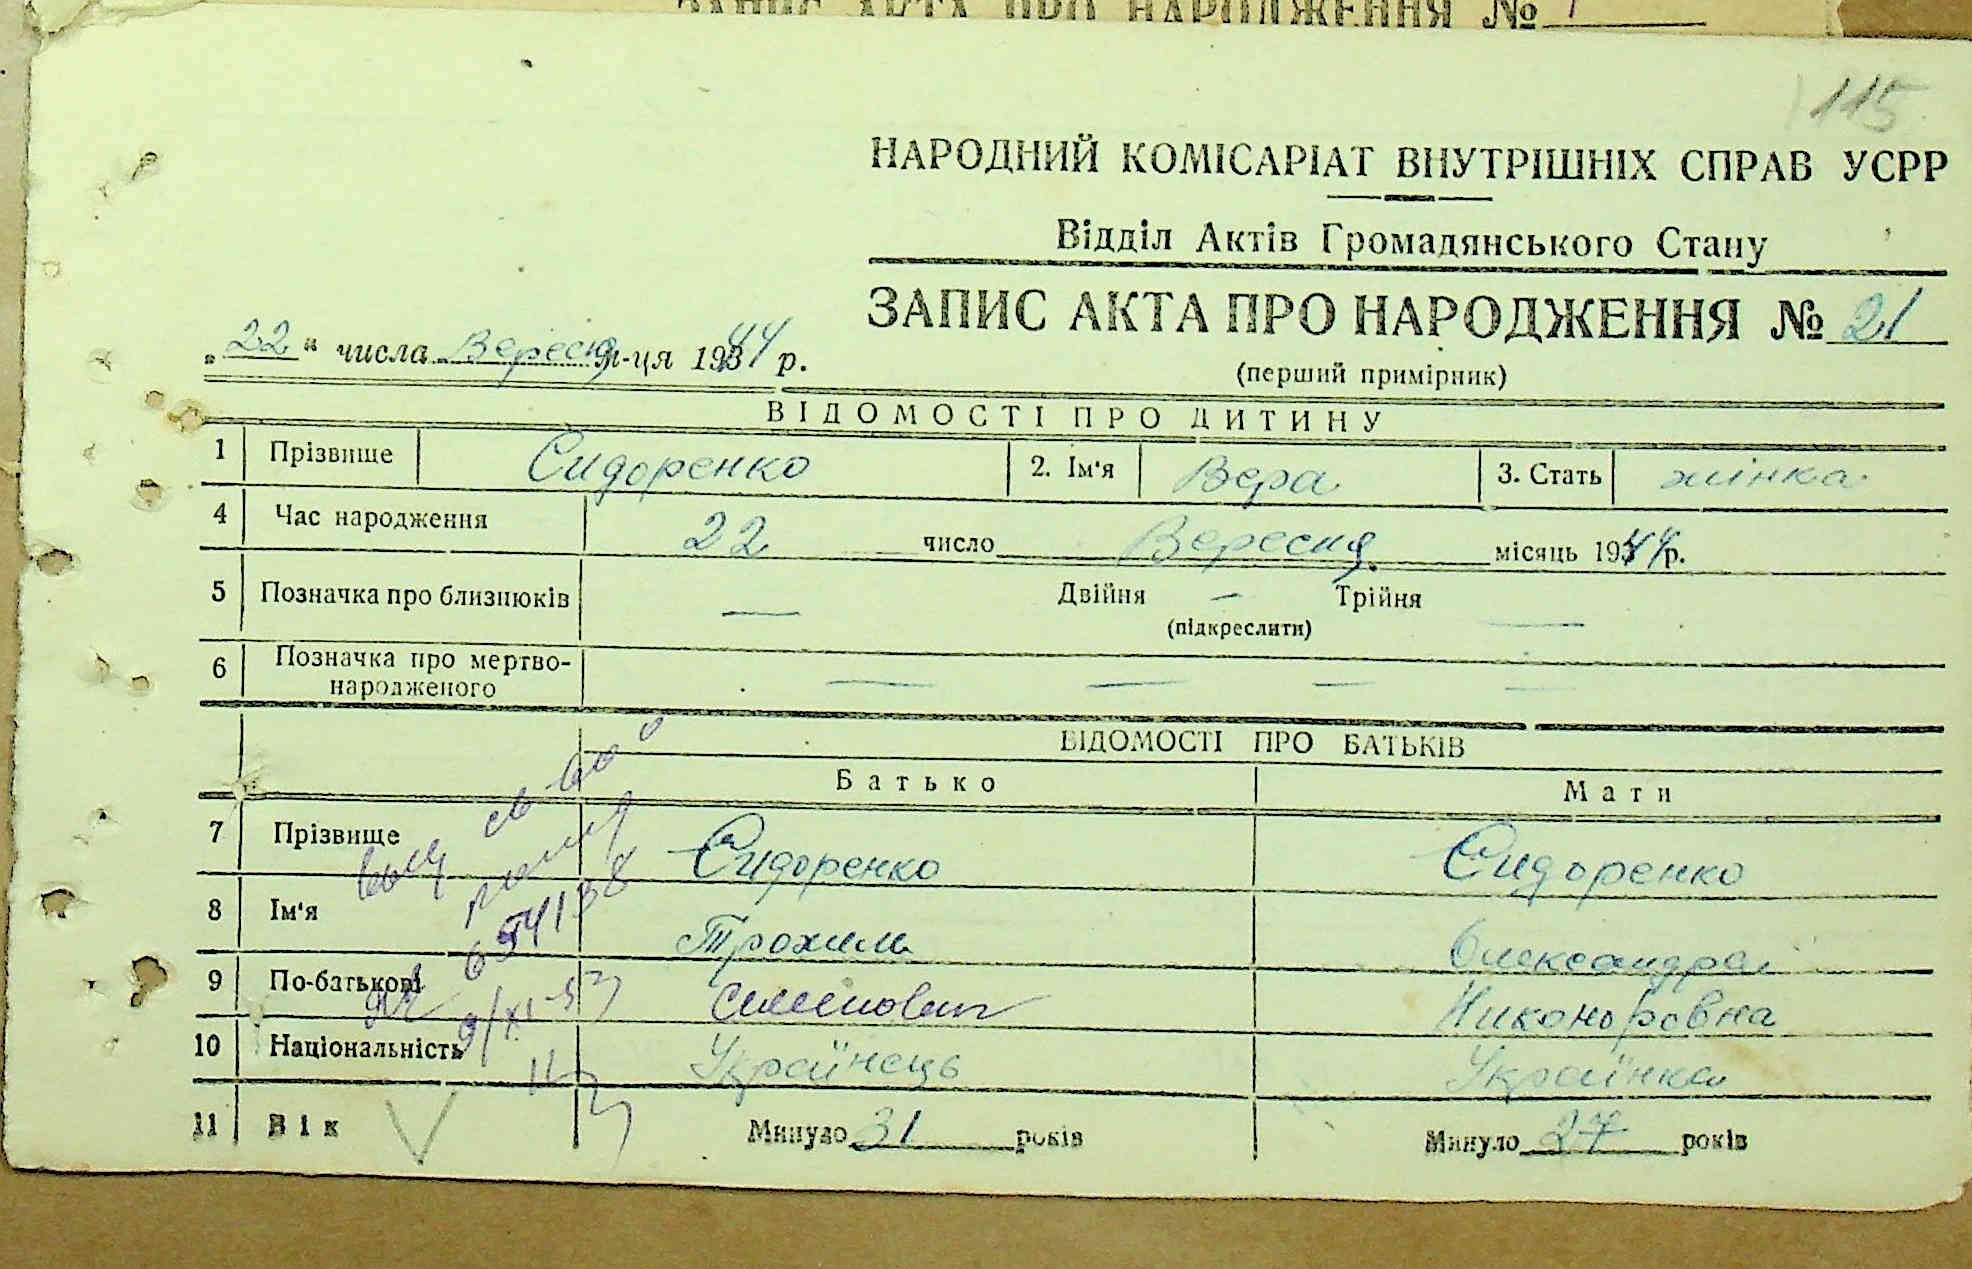 ЗАПИС АКТА ПРО НАРОДЖЕННЯ №
115
НАРОДНИЙ КОМІСАРІАТ ВНУТРІШНІХ СПРАВ УСРР
Відділ Актів Громадянського Стану
ЗАПИС АКТА ПРО НАРОДЖЕННЯ № 21
„22“ числа Вересня м-ця 1944 р.
(перший примірник)
ВІДОМОСТІ ПРО ДИТИНУ
1 Прізвище Сидоренко 2. Ім'я Вера 3. Стать жінка
4 Час народження 22 число Вересня місяць 1944 р.
5 Позначка про близнюків — Двійня — Трійня —
(підкреслити)
6 Позначка про мертво-
народженого — — — —
ВІДОМОСТІ ПРО БАТЬКІВ
Батько Мати
7 Прізвище Сидоренко Сидоренко
8 Ім'я Трохим Олександра
9 По-батькові Семенович Никоноровна
10 Національність Українець Українка
11 Вік Минуло 31 років Минуло 27 років